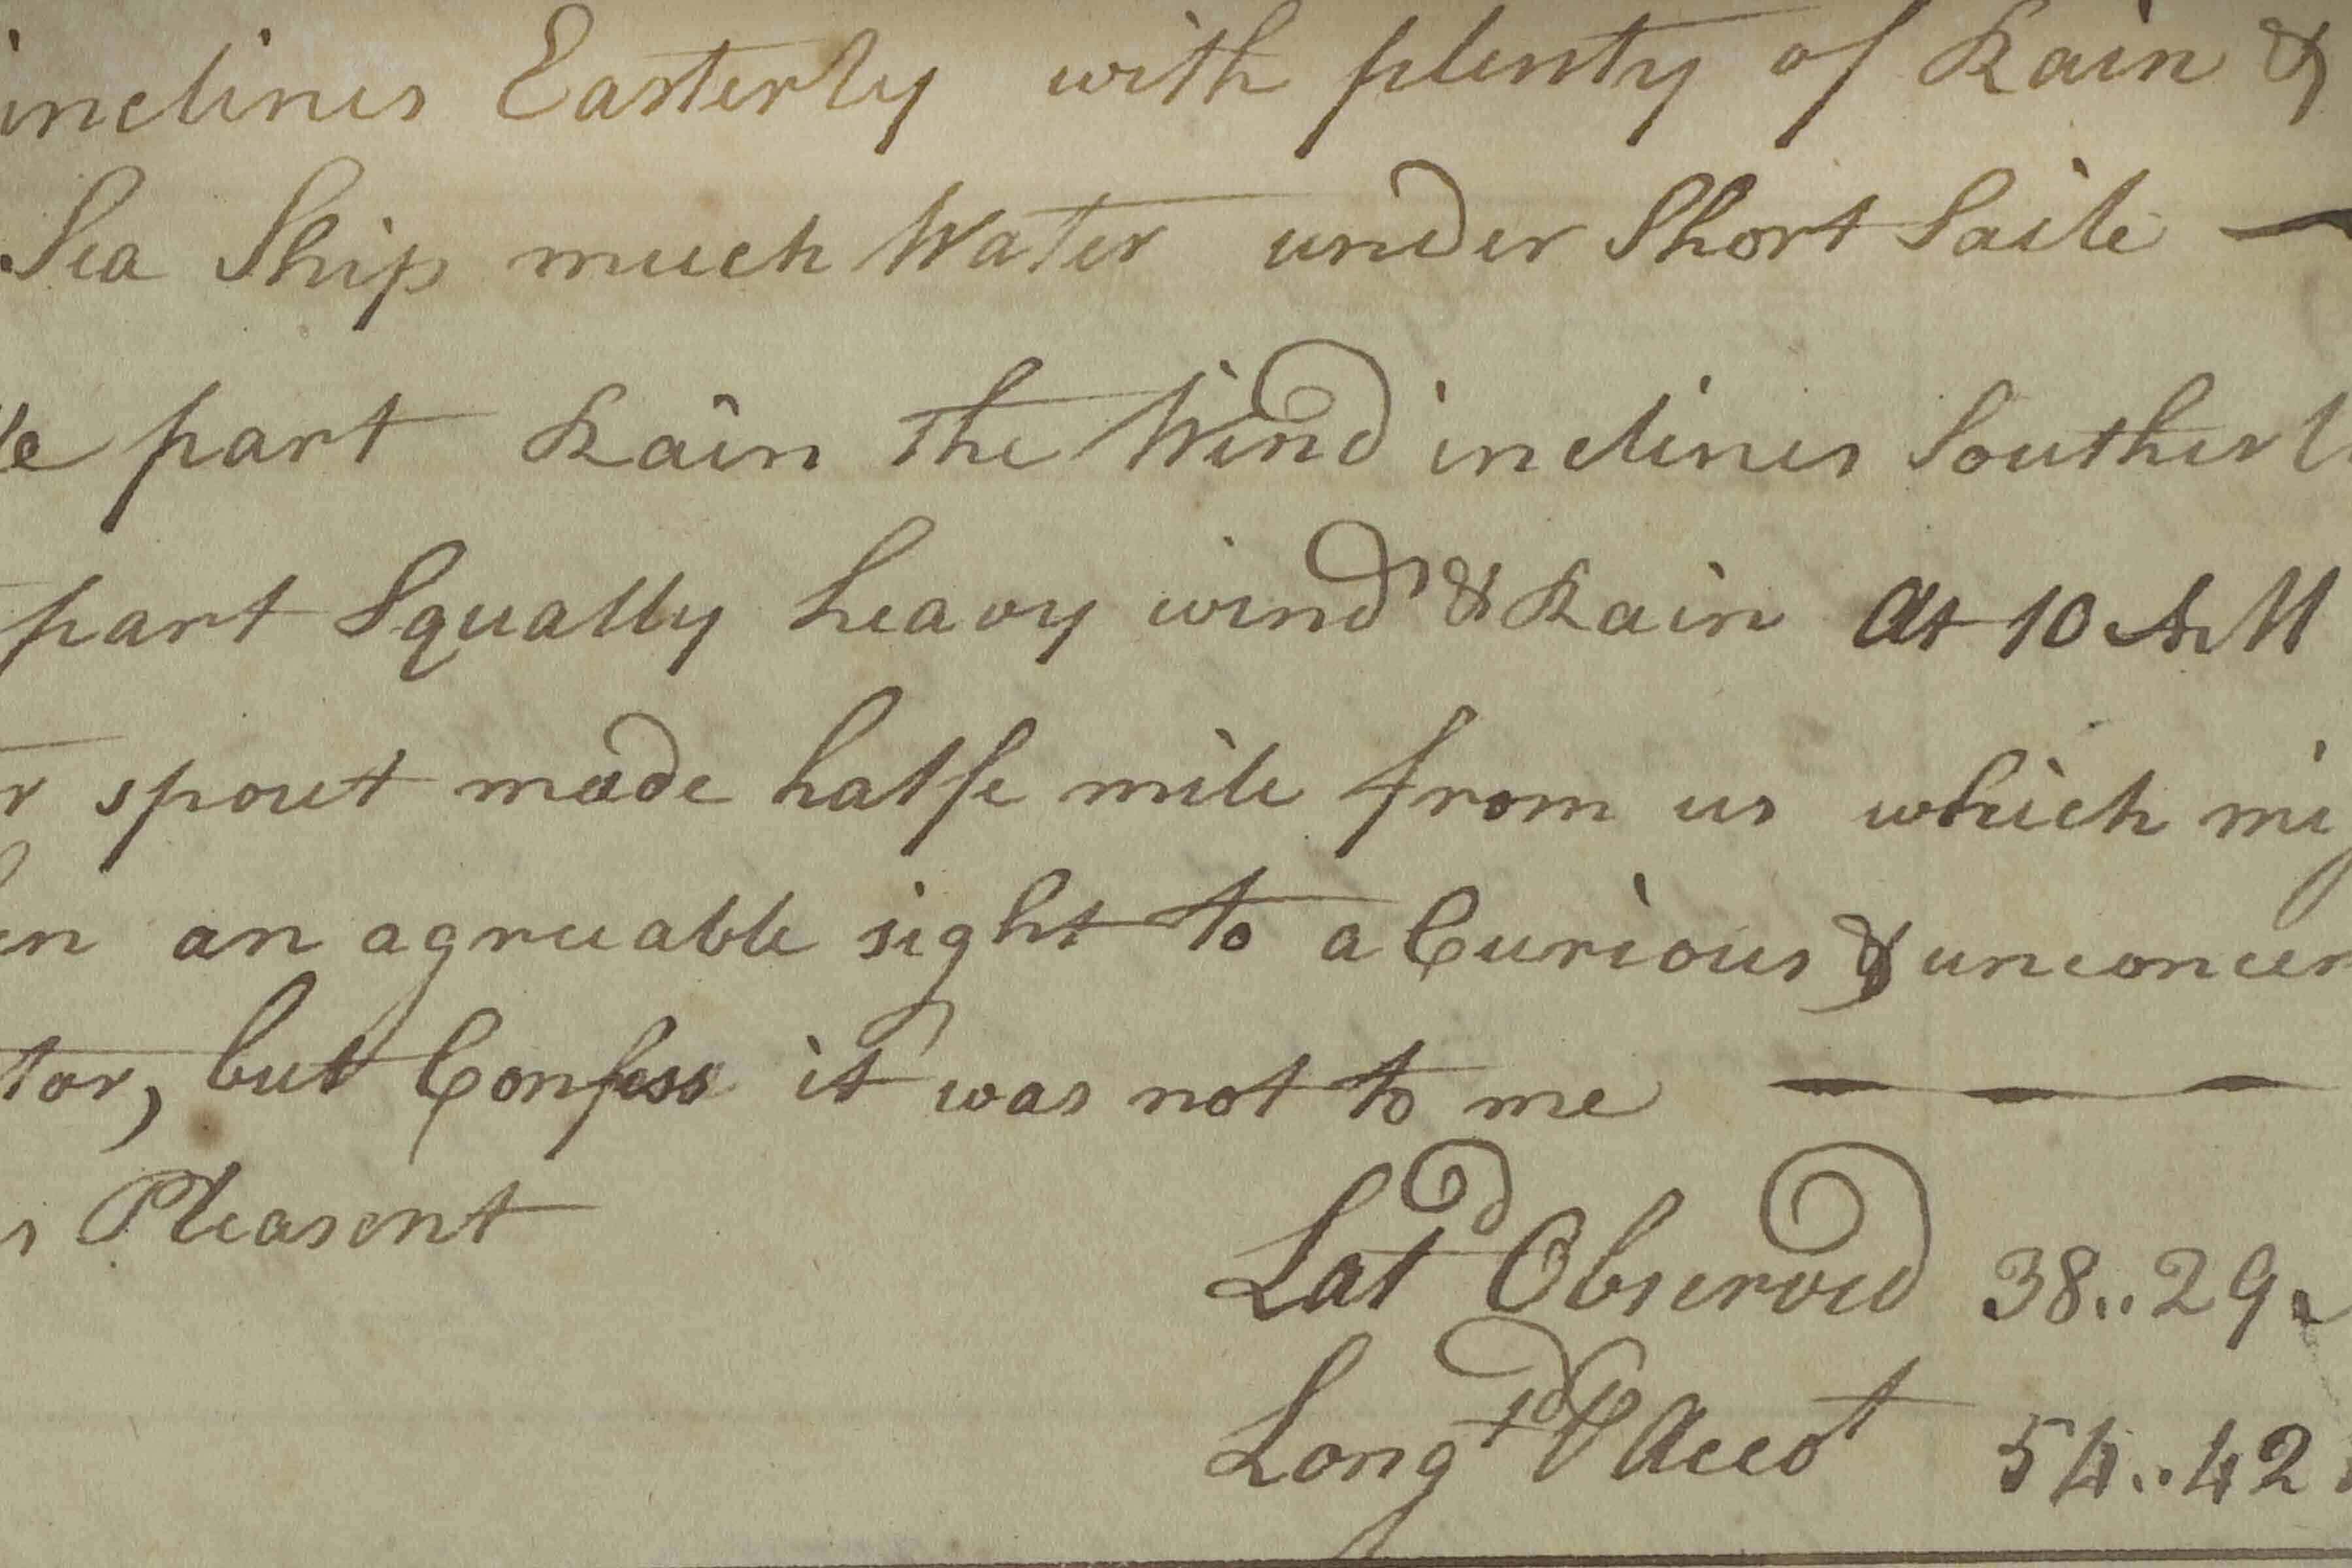 inclines Easterly with plenty of Rain &
Sea Ship much Water under Short Saile —
le part Rain the Wind inclines Southerl
part Squally heavy wind & Rain At 10 AM
r spout made halfe mile from us which mig
en an agreeable sight to a Curious & unconcer
tor, but Confess it was not to me — — —
s Pleasent
Latd Observed 38..29
Longtd ⅌ Accot 54..42